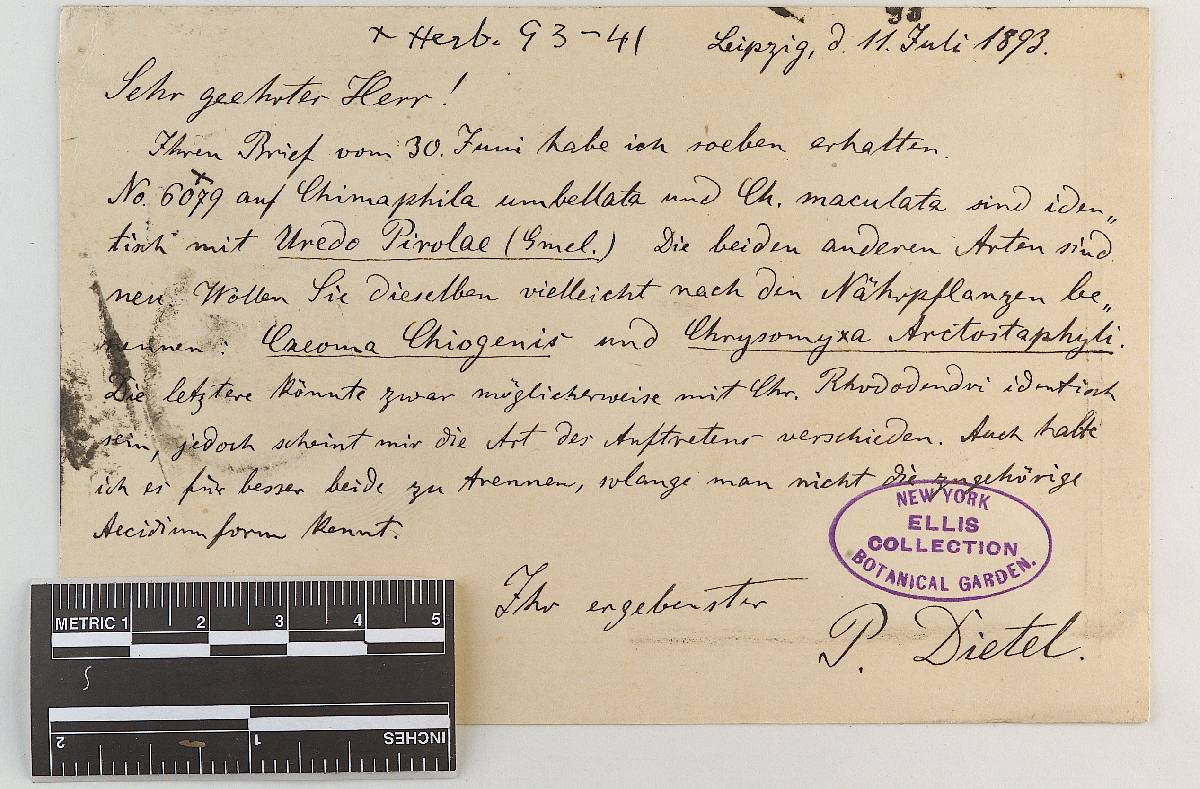 x Herb. 93-41 Leipzig, d. 11. Juli 1893.
Sehr geehrter Herr!
Ihren Brief vom 30. Juni habe ich soeben erhalten.
No. 6079 auf Chimaphila umbellata und Ch. maculata sind iden„
tisch mit Uredo Pirolae (Gmel.) Die beiden anderen Arten sind
neu. Wollen Sie dieselben vielleicht nach den Nährpflanzen be„
nennen: Caeoma Chiogenis und Chrysomyxa Arctostaphyli.
Die letztere könnte zwar möglicherweise mit Chr. Rhododendri identisch
sein, jedoch scheint mir die Art des Auftretens verschieden. Auch halte
ich es für besser beide zu trennen, solange man nicht die zugehörige
Aecidiumform kennt.
Ihr ergebenster
P. Dietel.
NEW YORK
ELLIS
COLLECTION
BOTANICAL GARDEN.
METRIC 1 2 3 4 5
INCHES 1 2